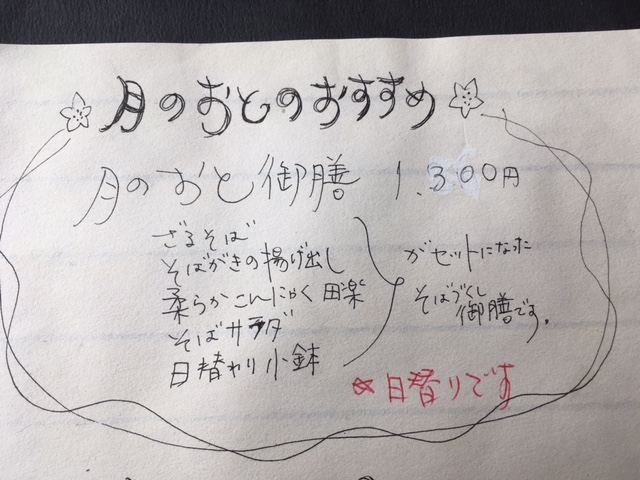 月のおとのおすすめ
月のおと御膳 1.300円
ざるそば
そばがきの揚げ出し
柔らかこんにゃく田楽
そばサラダ
日替わり小鉢
がセットになった
そばづくし
御膳です。
☆日替りです